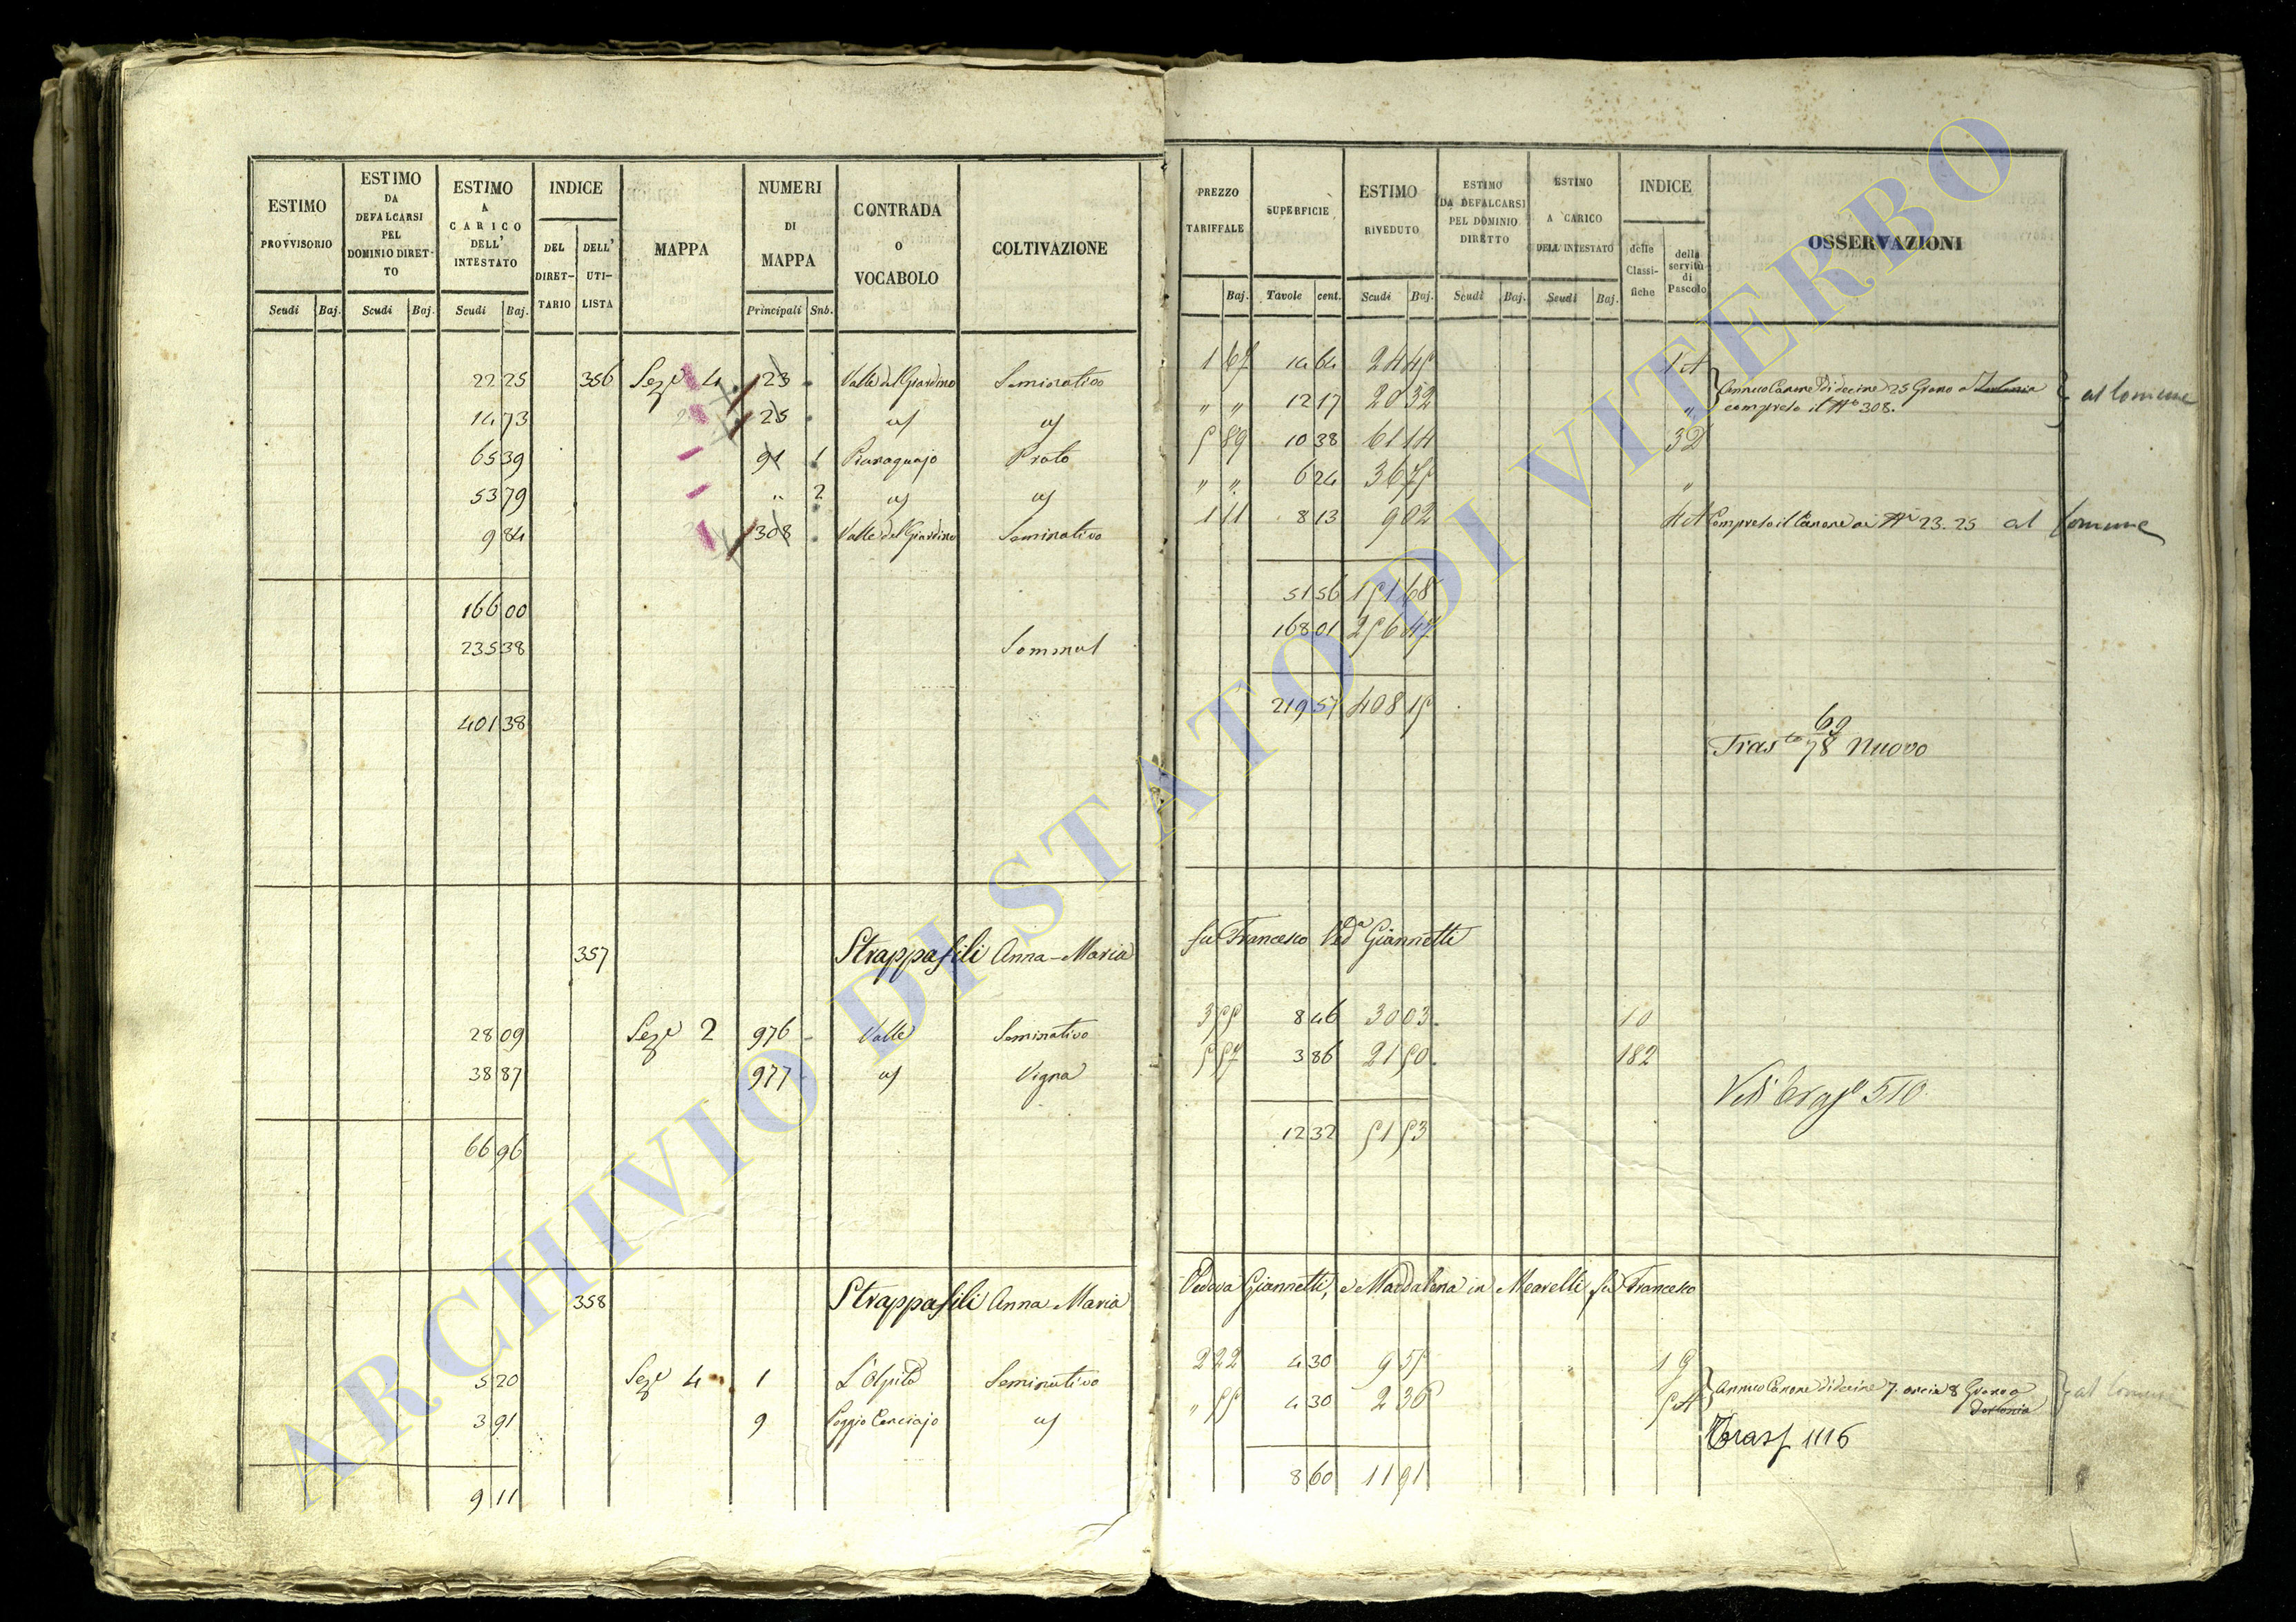 ESTIMO PROVVISORIO
ESTIMO DA DEFALCARSI PEL DOMINIO DIRETTO
ESTIMO A CARICO DELL' INTESTATO
INDICE
DEL DIRETTARIO
DELL' UTILISTA
MAPPA
NUMERI DI MAPPA
CONTRADA O VOCABOLO
COLTIVAZIONE
Scudi Baj. Scudi Baj. Scudi Baj. Principali Sub.
22 25 356 Sez.e 4. 23 Valle del Giardino Seminativo
14 73 25 id id
65 39 91 1 Pianaguajo Prato
53 79 " 2 id id
9 84 308 Valle del Giardino Seminativo
166 00
235 38
401 38
357 Strappafili Anna-Maria
28 09 Sez.e 2 976 Valle Seminativo
38 87 977 id Vigna
66 96
358 Strappafili Anna Maria
5 20 Sez.e 4 1 Seminativo
3 91 9 Poggio id
9 11
PREZZO TARIFFALE
SUPERFICIE
ESTIMO RIVEDUTO
ESTIMO DA DEFALCARSI PEL DOMINIO DIRETTO
ESTIMO A CARICO DELL' INTESTATO
INDICE
delle Classifiche
della servitù di Pascolo
OSSERVAZIONI
Baj. Tavole cent. Scudi Baj. Scudi Baj. Scudi Baj.
1 67 14 64 24 45 1 A Annuo Canone di decine 25 Grano a al Comune
" " 12 17 20 32 " compreso il N.o 308.
5 89 10 38 61 14 3 D
" " 6 24 36 75 "
1 11 8 13 9 02 4 A Compreso il Canone ai N.i 23. 25 al Comune
51 56 151 68
168 01 256 47
219 57 408 15
69
Tras.to 78 Nuovo
fu Francesco Ved.a Giannetti
3 55 8 46 30 03 10
5 57 3 86 21 50 182
510
12 32 51 53
Vedova Giannetti, e Maddalena in Mearelli fu Francesco
2 22 4 30 9 55 1 9
" 55 4 30 2 36 5 A Annuo Canone di decine 7. oncie 8 Grano a al Comune
Trasf 1116
8 60 11 91
ARCHIVIO DI STATO DI VITERBO